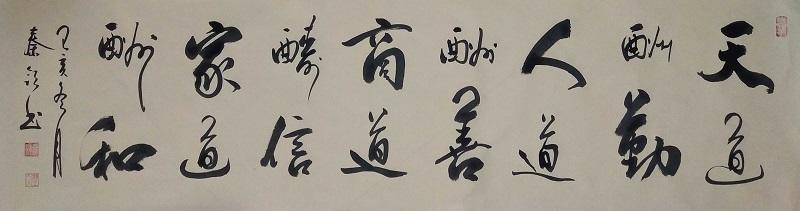 天道
酬勤
人道
酬善
商道
酬信
家道
酬和
亥冬月
秦